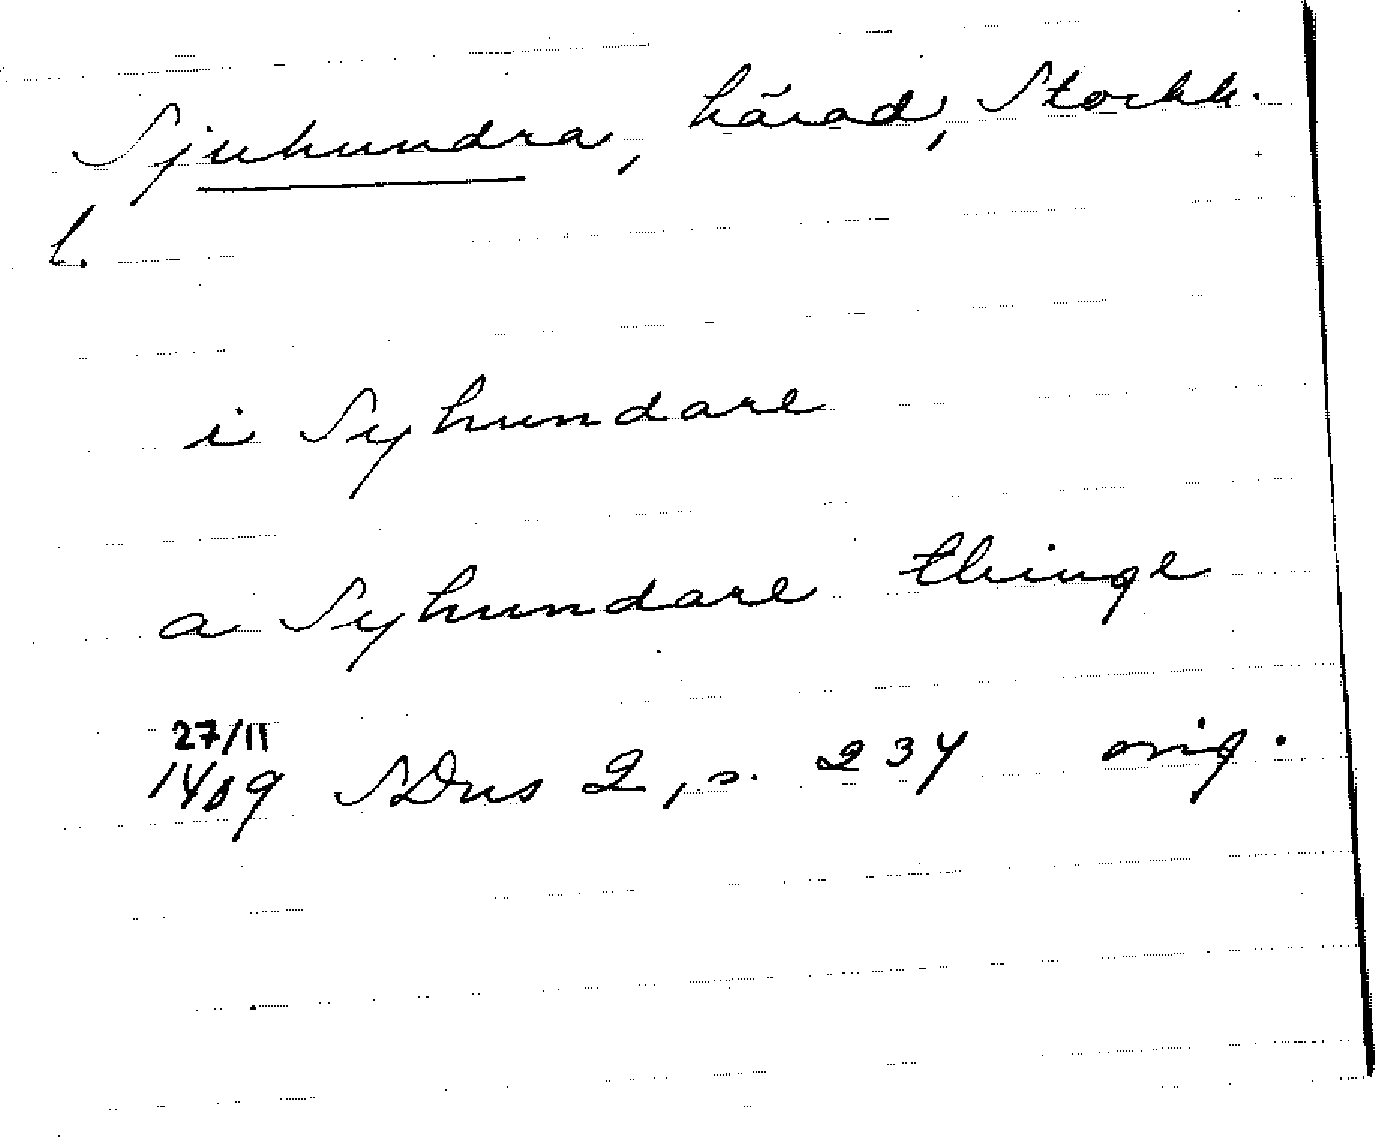 Sjuhundra, härad, Stockh.
l.
i Syhundare
a Syhundare thinge
27/11
1409 SDns 2, s. 234 orig.